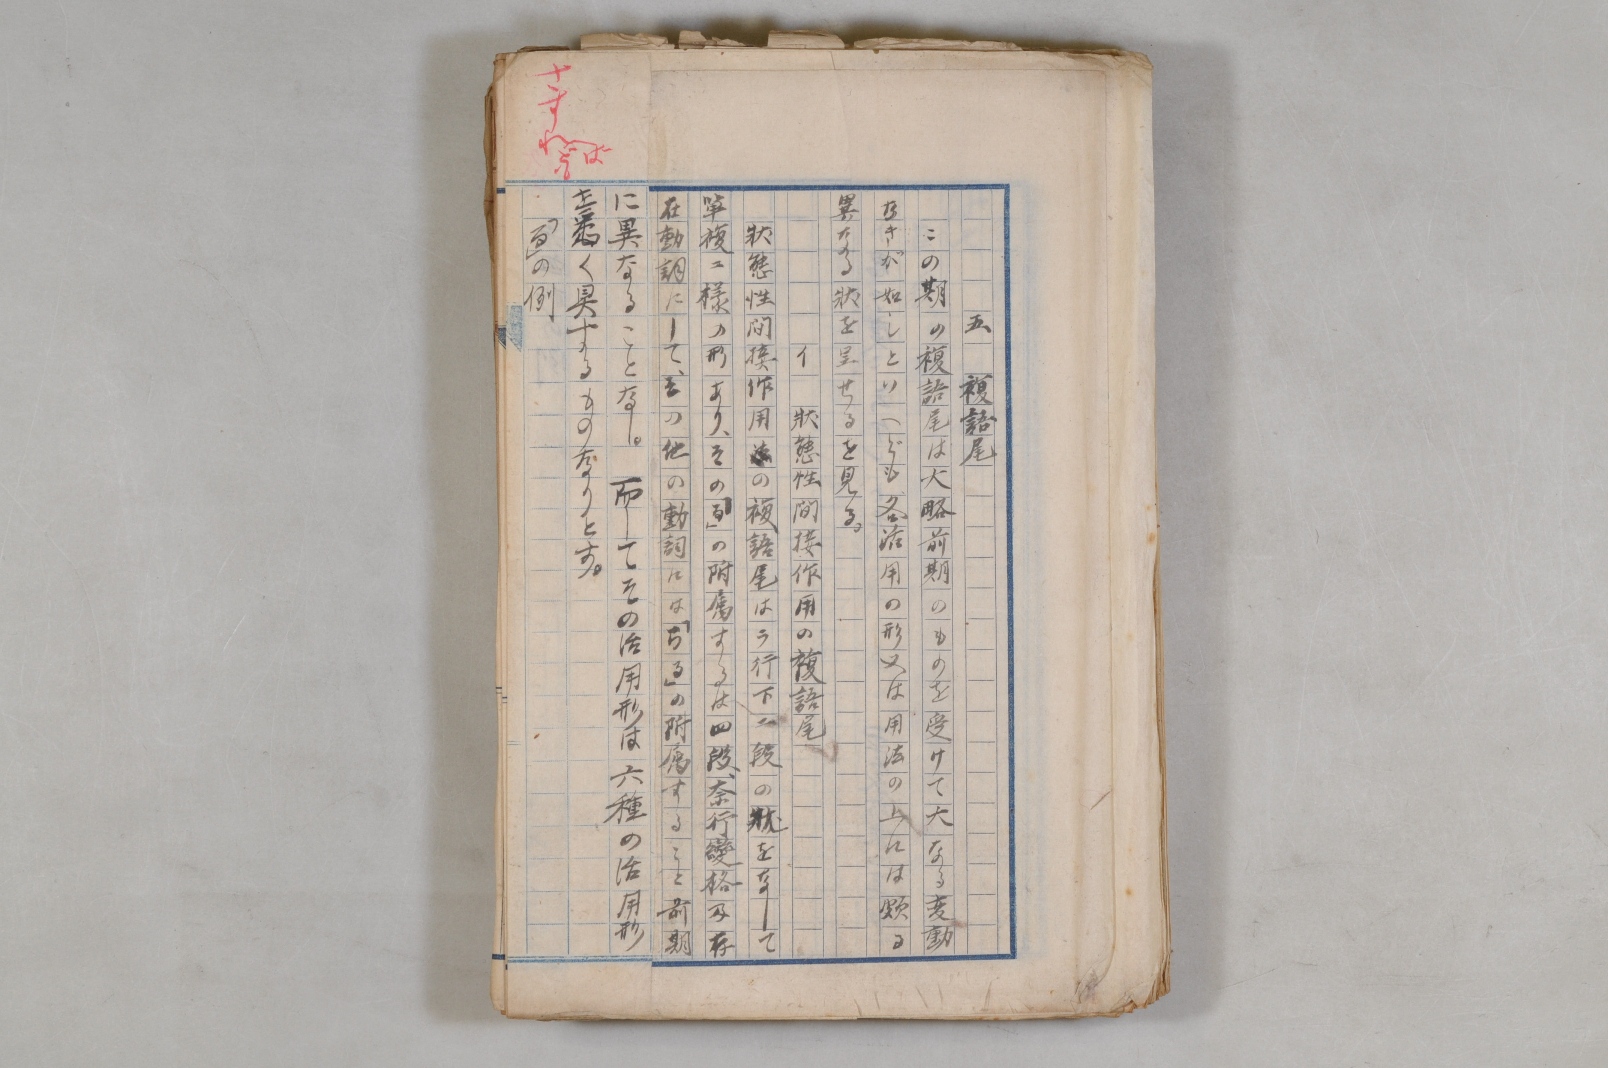 五　複語尾
この期の複語尾は大略前期のものを受けて大なる変動
なきが如しといへども各活用の形又は用法の上には頗る
異なる状を呈せるを見る。
イ　状態性間接作用の複語尾
状態性間接作用の複語尾はラ行下二段の状をなして
単複二様の形あり、その「る」の附属するは四段、奈行変格及存
在動詞にして、その他の動詞には「らる」の附属すること前期
に異なることなし。而してその活用形は六種の活用形
を悉く具するものなりとす。
「る」の例